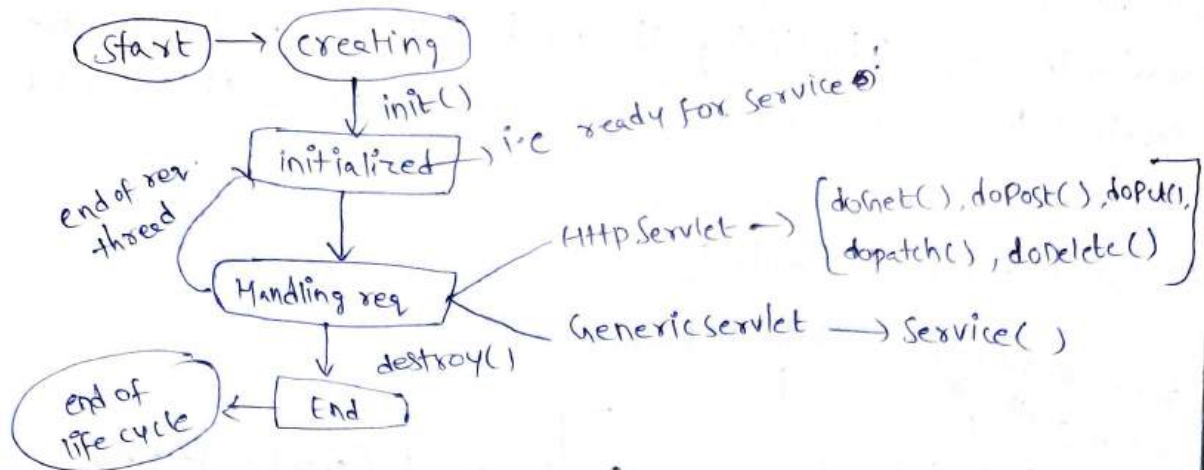 Start
creating
init()
initialized
i.e ready for service
end of req.
thread
Handling req
HttpServlet
doGet(), doPost(), doPut(),
dopatch(), doDelete()
Genericservlet
Service( )
destroy()
End
end of
life cycle